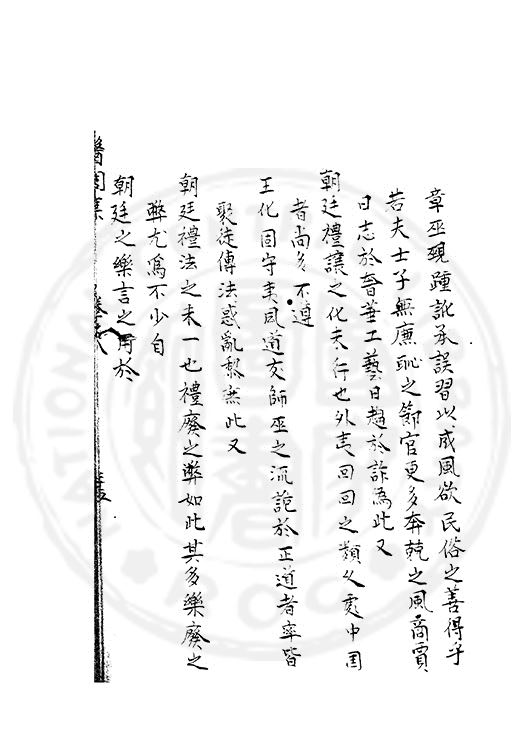 章巫覡踵訛承誤習以成風欲民俗之善得乎
若夫士子無廉恥之節官吏多奔競之風商賈
日志於奢華工藝日趨於詐偽此又
朝廷禮讓之化未行也外夷回回之類久處中国
者尚多不遵
王化固守夷風道友師巫之流詭於正道者率皆
聚徒傳法惑亂黎庶此又
朝廷禮法之未一也禮廢之弊如此其多樂廢之
弊尤爲不少自
朝廷之樂言之用於
醫閭集